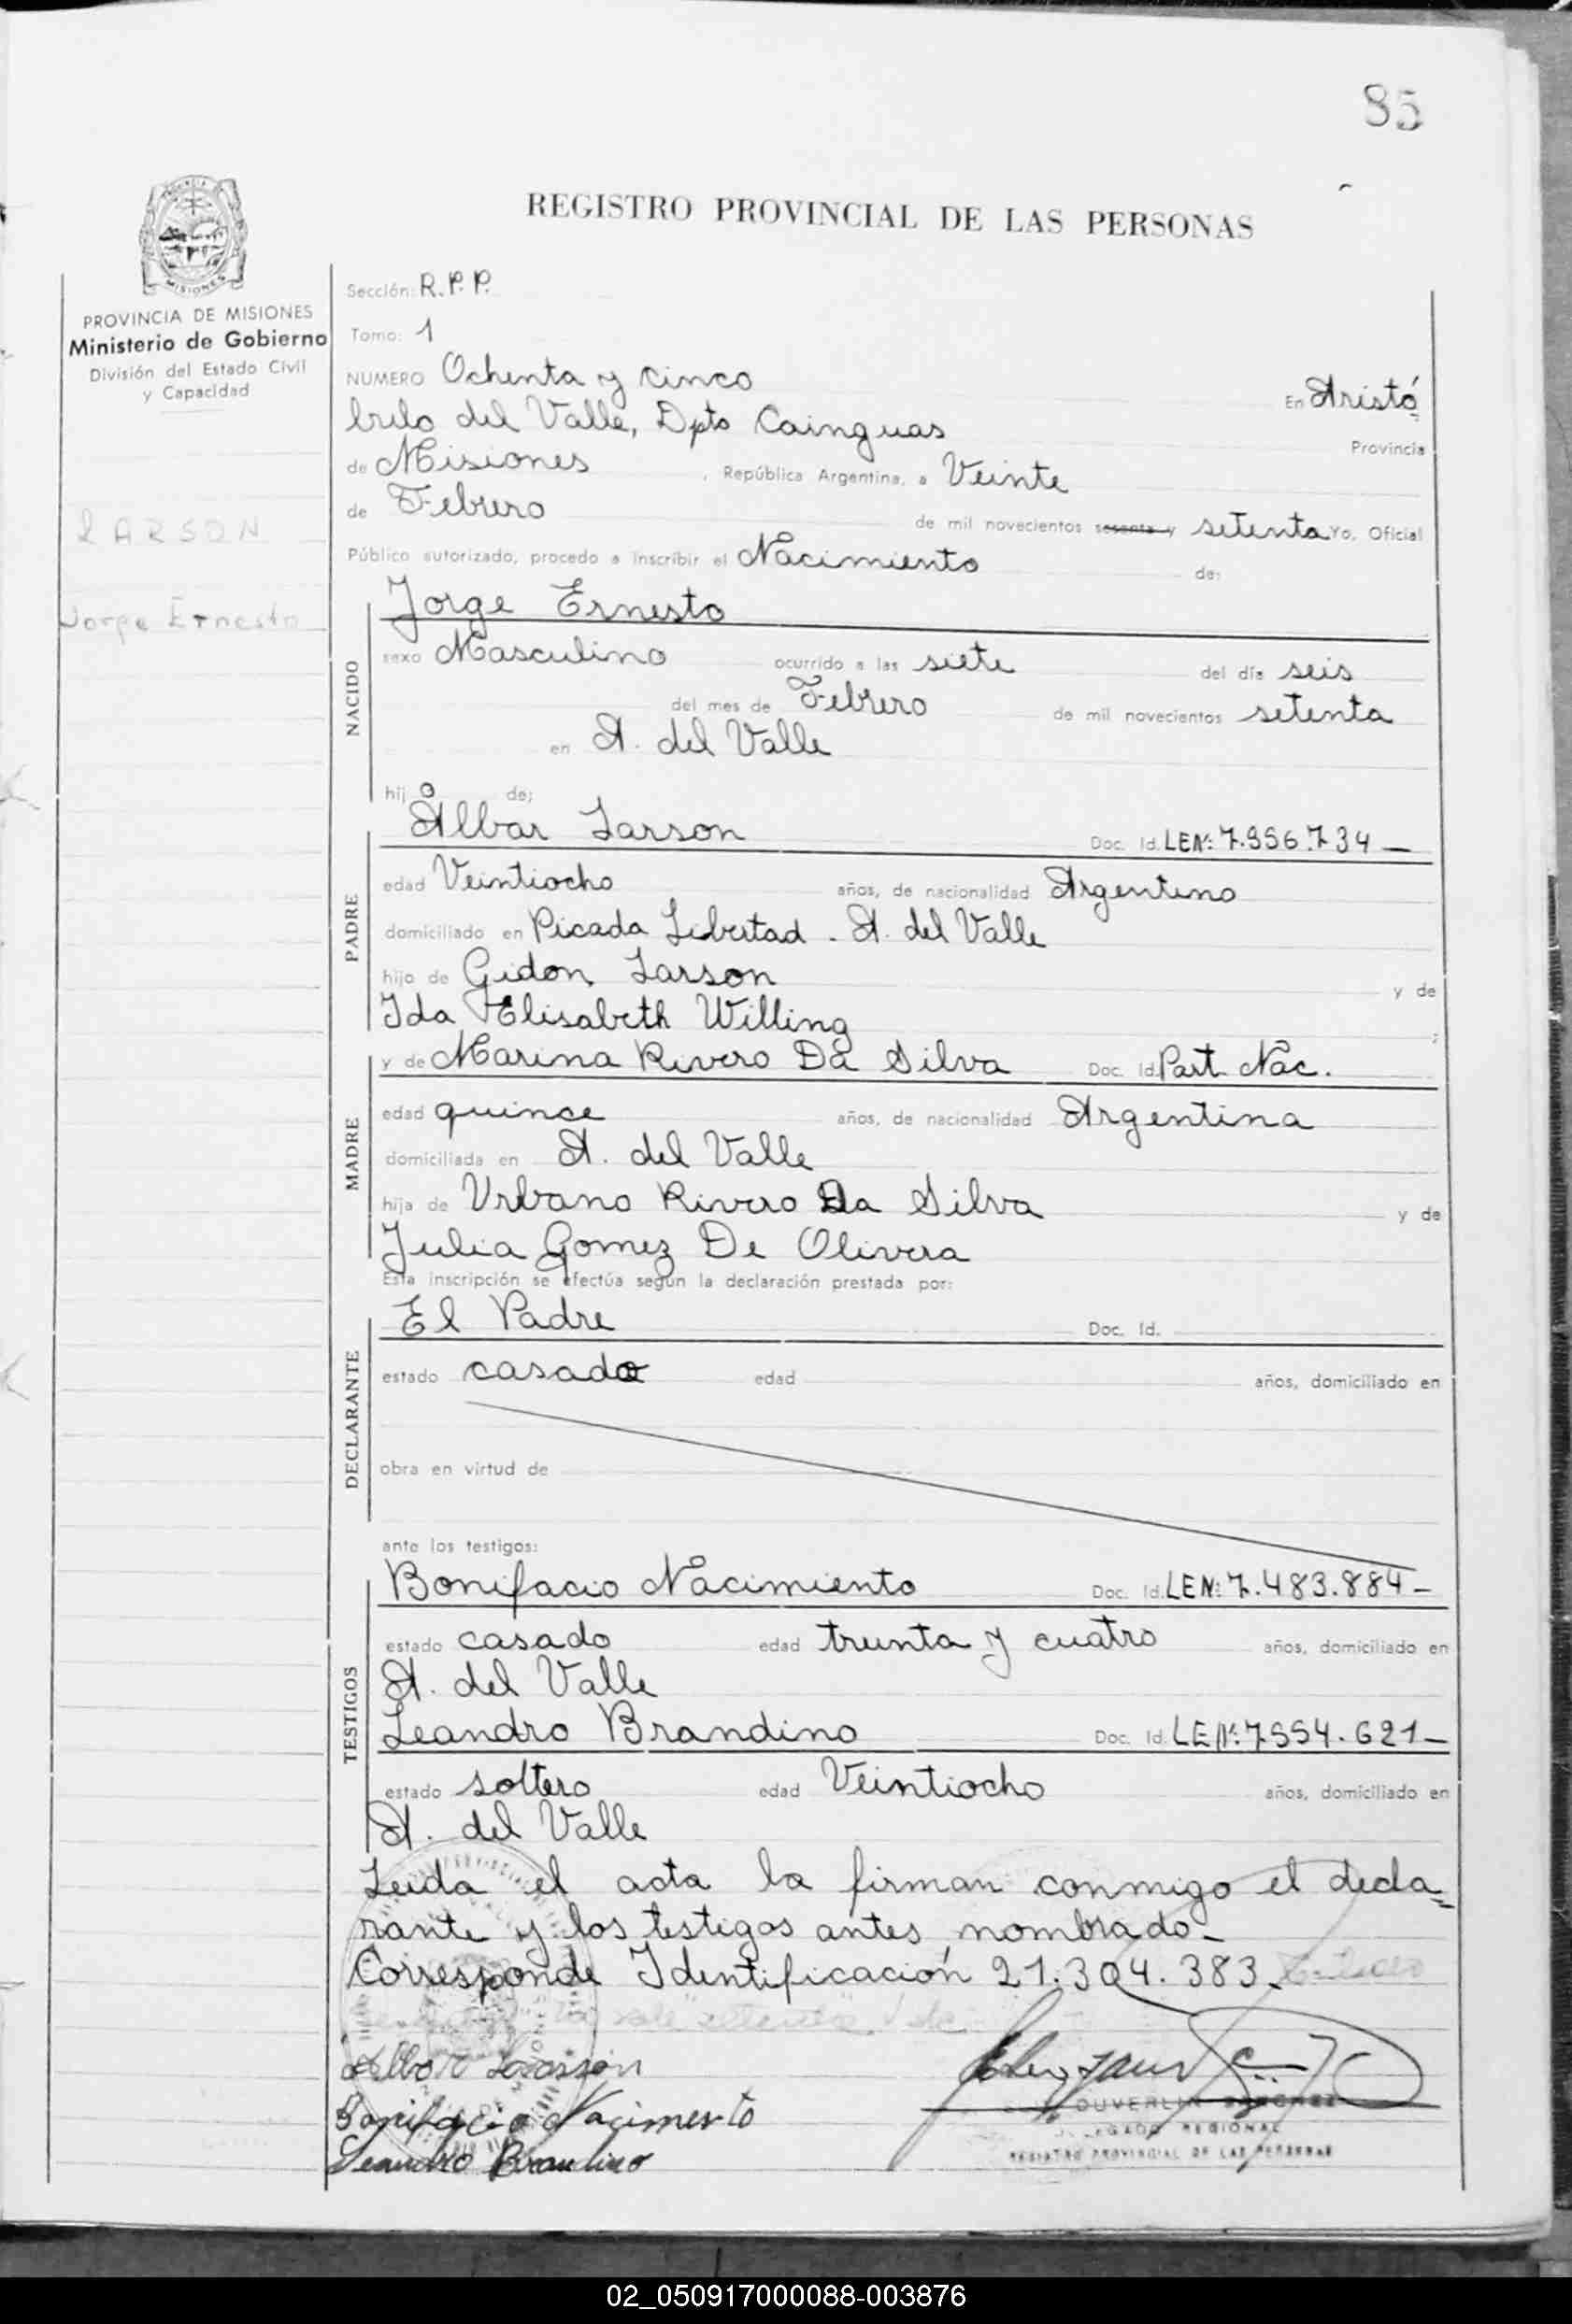 85
REGISTRO PROVINCIAL DE LAS PERSONAS
MISIONES
PROVINCIA DE MISIONES
Ministerio de Gobierno
División del Estado Civil
y Capacidad
LARSON
Jorge Ernesto
Sección: R.P.P.
Tomo: 1
NUMERO Ochenta y cinco En Aristó
bulo del Valle, Dpto Cainguas Provincia
de Misiones , República Argentina, a Veinte
de Febrero de mil novecientos sesenta y setenta Yo, Oficial
Público autorizado, procedo a inscribir el Nacimiento de:
NACIDO
Jorge Ernesto
sexo Masculino ocurrido a las siete del día seis
del mes de Febrero de mil novecientos setenta
en A. del Valle
hij o de;
PADRE
Albar Larson Doc. Id. LEN: 7.556.734 —
edad Veintiocho años, de nacionalidad Argentino
domiciliado en Picada Libertad - A. del Valle
hijo de Gidon Larson y de
Ida Elisabeth Willing ;
MADRE
y de Marina Rivero Da Silva Doc. Id. Part. Nac.
edad quince años, de nacionalidad Argentina
domiciliada en A. del Valle
hija de Urbano Rivero Da Silva y de
Julia Gomez De Olivera
Esta inscripción se efectúa según la declaración prestada por:
DECLARANTE
El Padre Doc. Id.
estado casado edad años, domiciliado en
obra en virtud de
ante los testigos:
TESTIGOS
Bonifacio Nacimiento Doc. Id. LEN: 7.483.884 —
estado casado edad treinta y cuatro años, domiciliado en
A. del Valle
Leandro Brandino Doc. Id. LEN: 7554.621 —
estado soltero edad Veintiocho años, domiciliado en
A. del Valle
Leida el acta la firman conmigo el decla=
rante y los testigos antes nombrado -
Corresponde Identificación 21.304.383
vale "setenta"
Albar Larson
Bonifacio Nacimento
Leandro Brandino
DUVERLIN SANCHEZ
DELEGADO REGIONAL
REGISTRO PROVINCIAL DE LAS PERSONAS
02_050917000088-003876